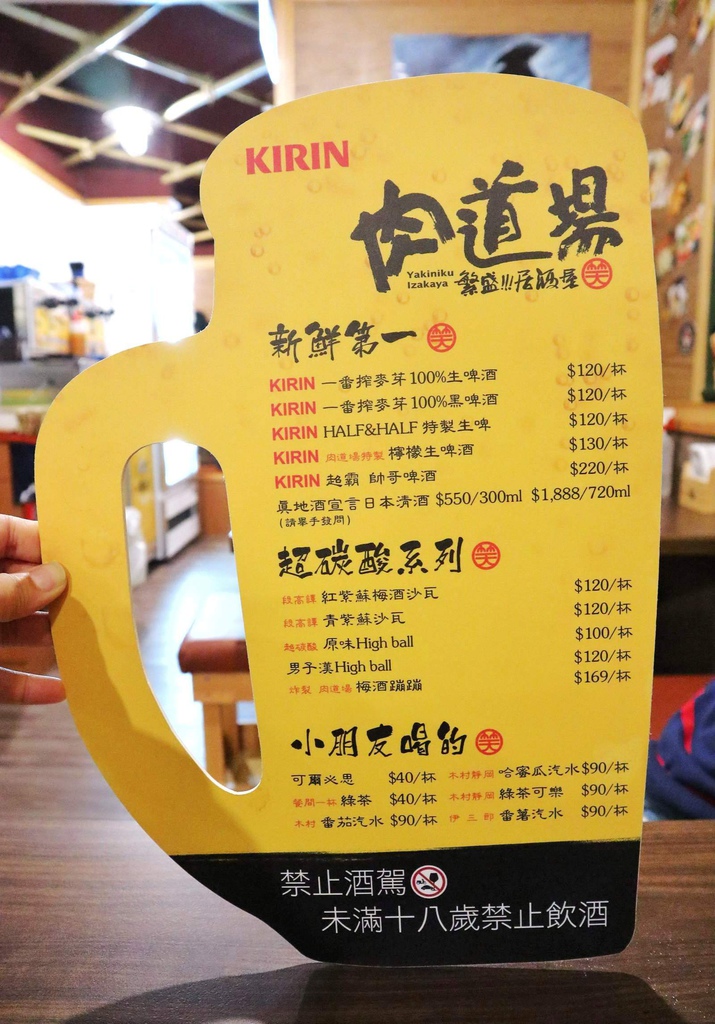 KIRIN
肉道場
Yakiniku
Izakaya 繁盛!!!居酒屋 笑
新鮮第一 笑
KIRIN 一番搾麥芽100%生啤酒 $120/杯
KIRIN 一番搾麥芽100%黑啤酒 $120/杯
KIRIN HALF&HALF 特製生啤 $120/杯
KIRIN 肉道場特製 檸檬生啤酒 $130/杯
KIRIN 超霸 帥哥啤酒 $220/杯
眞地酒宣言日本清酒 $550/300ml $1,888/720ml
(請舉手發問)
超碳酸系列 笑
段高譯 紅紫蘇梅酒沙瓦 $120/杯
段高譯 青紫蘇沙瓦 $120/杯
超碳酸 原味High ball $100/杯
男子漢High ball $120/杯
炸製 肉道場 梅酒蹦蹦 $169/杯
小朋友喝的 笑
可爾必思 $40/杯 木村靜岡 哈蜜瓜汽水 $90/杯
餐間一杯 綠茶 $40/杯 木村靜岡 綠茶可樂 $90/杯
木村 番茄汽水 $90/杯 伊三郎 番薯汽水 $90/杯
禁止酒駕
未滿十八歲禁止飲酒